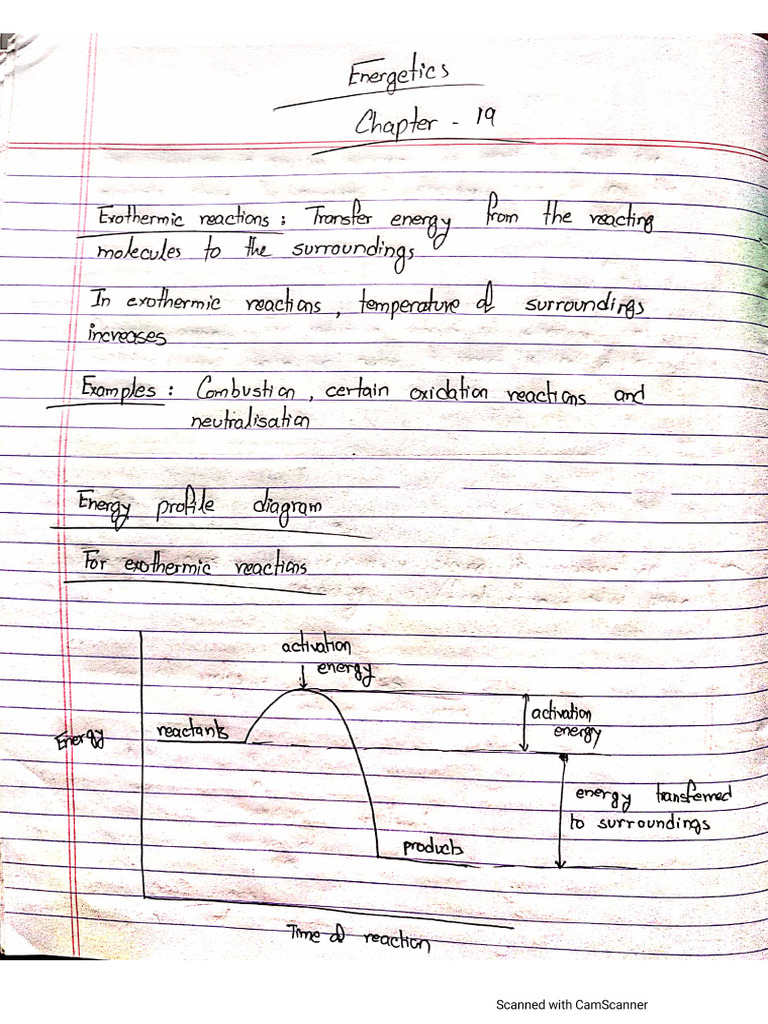 Energetics
Chapter - 19
Exothermic reactions : Transfer energy from the reacting
molecules to the surroundings
In exothermic reactions, temperature of surroundings
increases
Examples : Combustion, certain oxidation reactions and
neutralisation
Energy profile diagram
For exothermic reactions
activation
energy
reactants
Energy
activation
energy
energy transferred
to surroundings
products
Time of reaction
Scanned with CamScanner